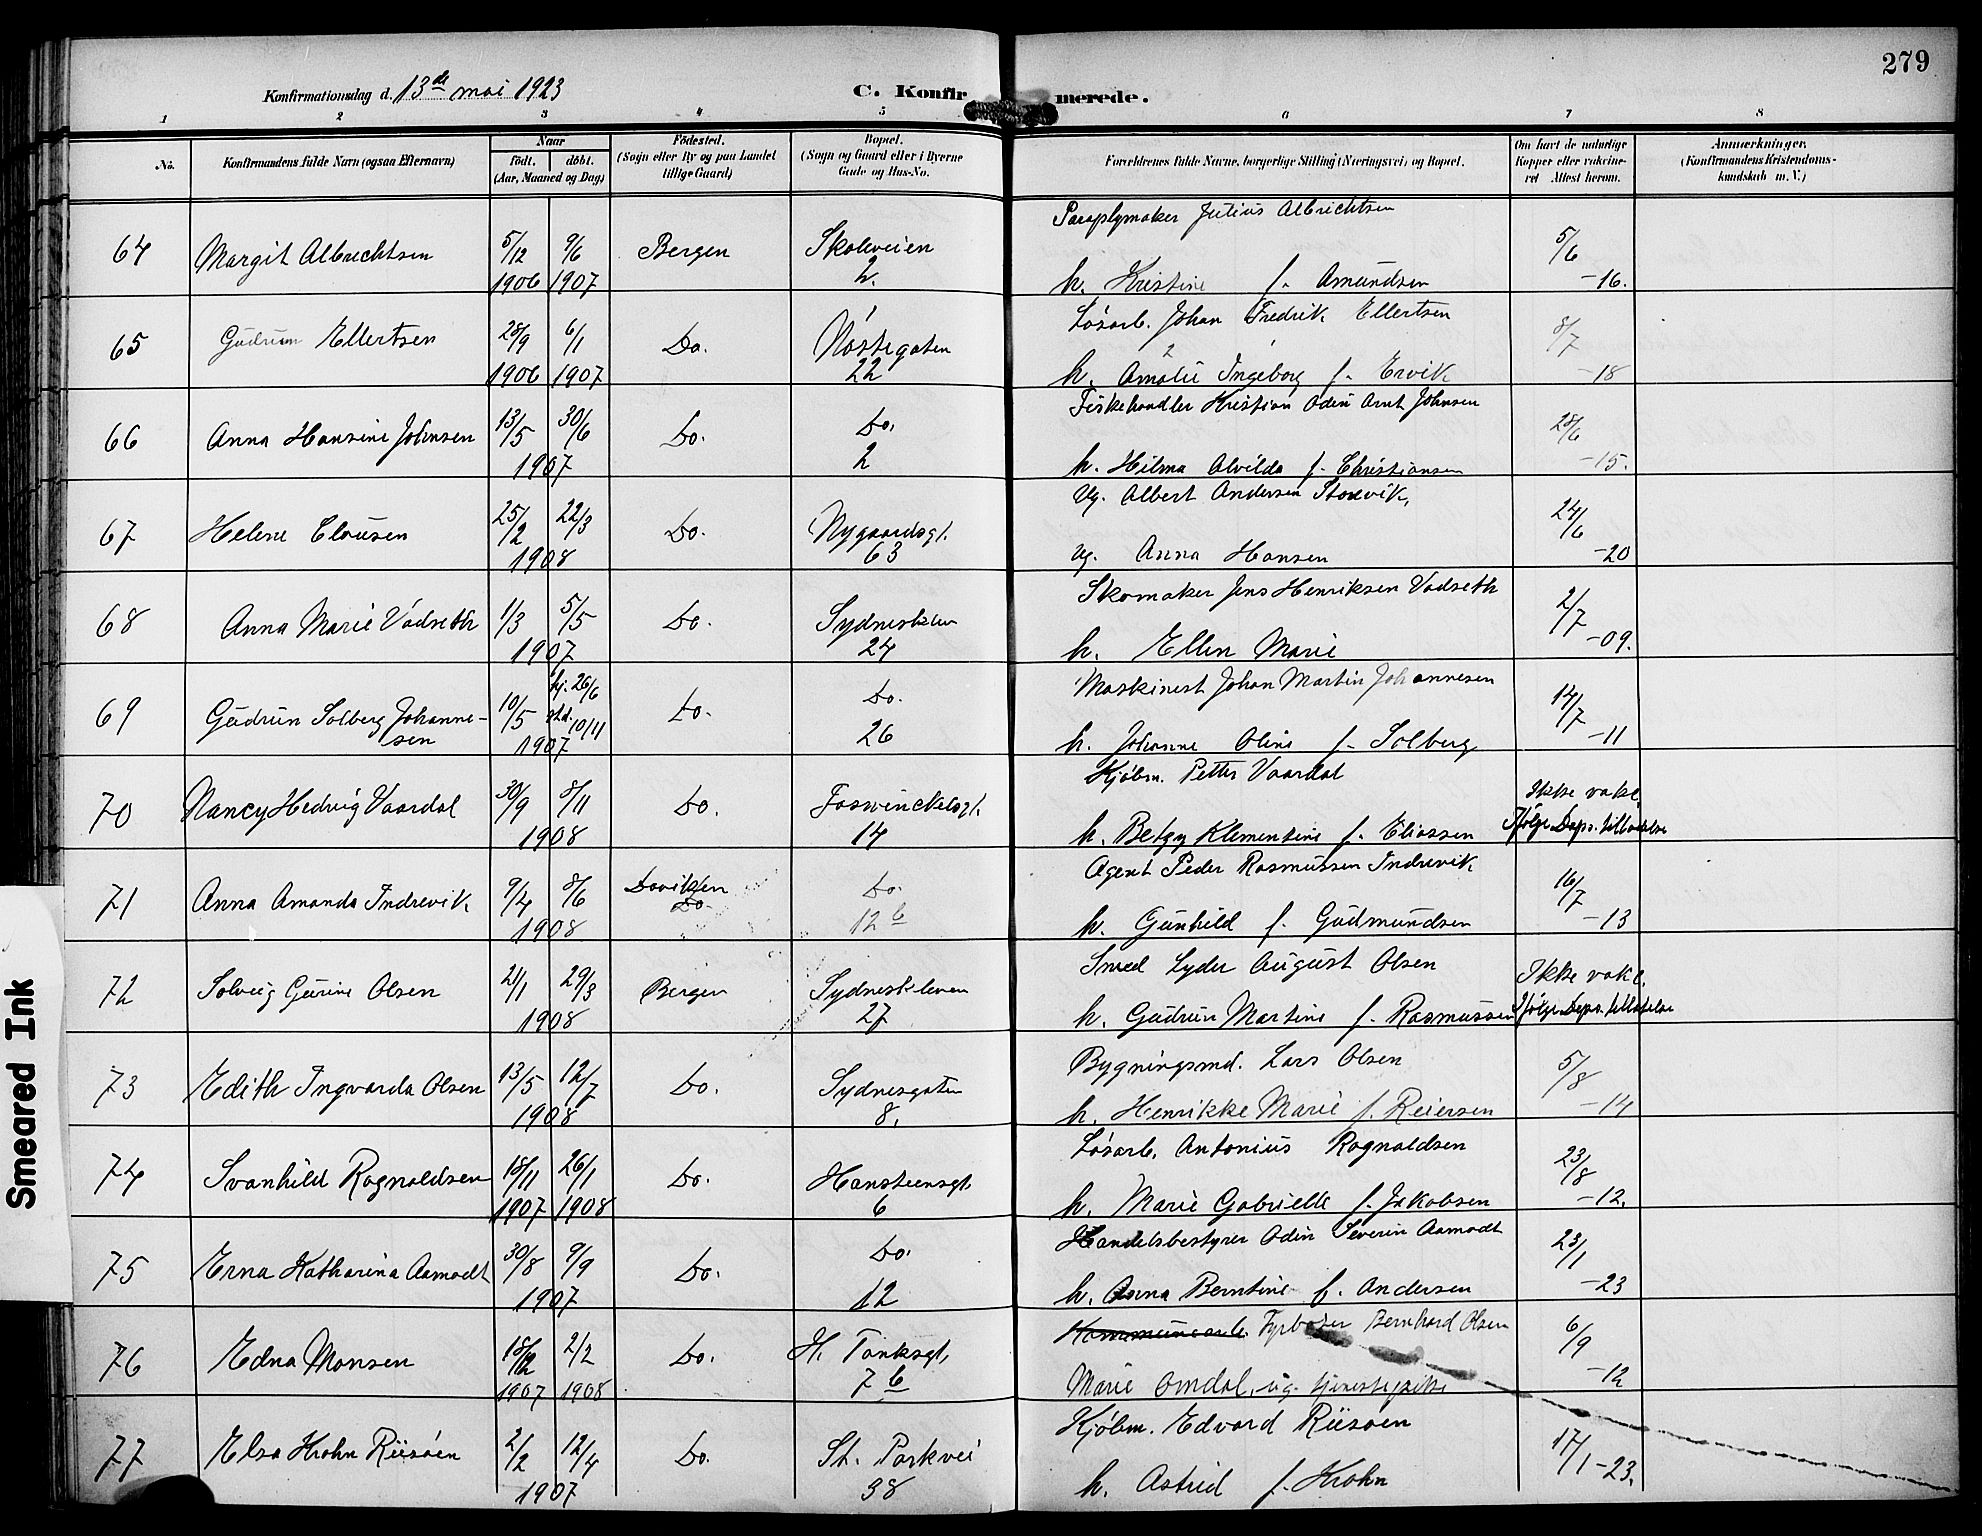 279
Konfirmationsdag d. 13de mai 1923 C. Konfirmerede.
1 2 3 4 5 6 7 8
No. Konfirmandens fulde Navn (ogsaa Efternavn) Naar Fødested. Bopæl. Forældrenes fulde Navne, borgerlige Stilling (Næringsvei) og Bopæl. Om havt de naturlige Anmærkninger.
født. døbt. (Sogn eller By og paa Landet (Sogn og Gaard eller i Byerne Kopper eller vakcine- (Konfirmandens Kristendoms-
(Aar, Maaned og Dag) tillige Gaard) Gade og Hus-No. ret Attest herom. kundskab m. V.)
Paraplymaker Julius Albrichtsen
64 Margit Albrechtsen 5/12 9/6 Bergen Skoleveien 5/6
1906 1907 2. h. Kristine f. Amundsen -16.
65 Gudrun Ellertsen 28/9 6/1 Do. Nøstegaten Løsarb. Johan Fredrik Ellertsen 8/7
1906 1907 22 h. Amalie Ingeborg f. Ervik -18
66 Anna Hansine Johnsen 13/5 30/6 Do. Do. Fiskehandler Kristian Odin Arnt Johnsen 28/6
1907 2 h. Hilma Alvilda f. Christiansen -15.
67 Helene Clausen 25/2 22/3 Do. Nygaardsgt. Ug. Albert Andersen Storvik, 24/6
1908 63 ug. Anna Hansen -20
68 Anna Marie Vadseth 1/3 5/5 Do. Sydneskleven Skomaker Jens Henriksen Vadseth 2/7
1907 24 h. Ellen Marie -09.
69 Gudrun Solberg Johanne- 10/5 hj. 26/6 Do. Do. Maskinest Johan Martin Johannesen 14/7
sen std. 10/11
1907 26 h. Johanne Oline f. Solberg -11
70 Nancy Hedvig Vaardal 30/9 8/11 Do. Foswinckelsgt. Kjøbm. Petter Vaardal Ikke vakc.
1908 14 h. Betzy Klementine f. Eliassen Ifølge Deps. tilladelse
71 Anna Amanda Indrevik 9/4 8/6 Daviken Do. Agent Peder Rasmussen Indrevik 16/7
Do.
1908 12 b h. Gunhild f. Gudmundsen -13
72 Solveig Gurine Olsen 21/1 29/3 Bergen Sydneskleven Smed Lyder August Olsen Ikke vakc.
1908 27 h. Gudrun Martine f. Rasmussen Ifølge Deps. tilladelse
73 Edith Ingvarda Olsen 13/5 12/7 Do. Sydnesgaten Bygningsmd. Lars Olsen 5/8
1908 8. h. Henrikke Marie f. Reiersen -14
74 Svanhild Ragnaldsen 18/11 26/1 Do. Hansteensgt. Løsarb. Antonius Ragnaldsen 23/8
1907 1908 6 h. Marie Gabrielle f. Jakobsen -12.
75 Erna Katharina Aamodt 30/8 9/9 Do. Do. Handelsbestyrer Odin Severin Aamodt 23/1
1907 12 h. Anna Berntine f. Andersen -23
76 Edna Monsen 18/12 2/2 Do. H. Tanksgt. Kommunearb. Fyrbøter Bernhard Olsen 6/9
1907 1908 7 b Marie Omdal, ug. tjenestepike -12
77 Elsa Krohn Riisøen 2/2 12/4 Do. St. Parkvei Kjøbm. Edvard Riisøen 17/1-23.
1907 38 h. Astrid f. Krohn
Smeared Ink